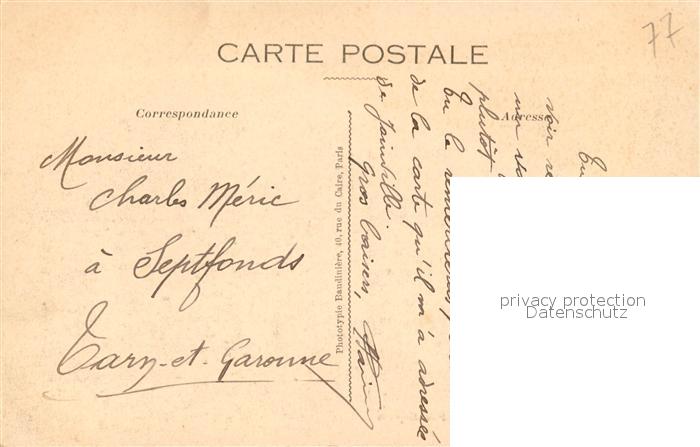 77
CARTE POSTALE
Correspondance
Adresse
Monsieur
Charles Méric
à Septfonds
Tarn-et-Garonne
Phototypie Baudinière, 40, rue du Caire, Paris
Tu
voir
plutôt
Tu le remercieras,
de la carte qu'il m'a adressée
de Joinville.
Gros baisers,
privacy protection
Datenschutz